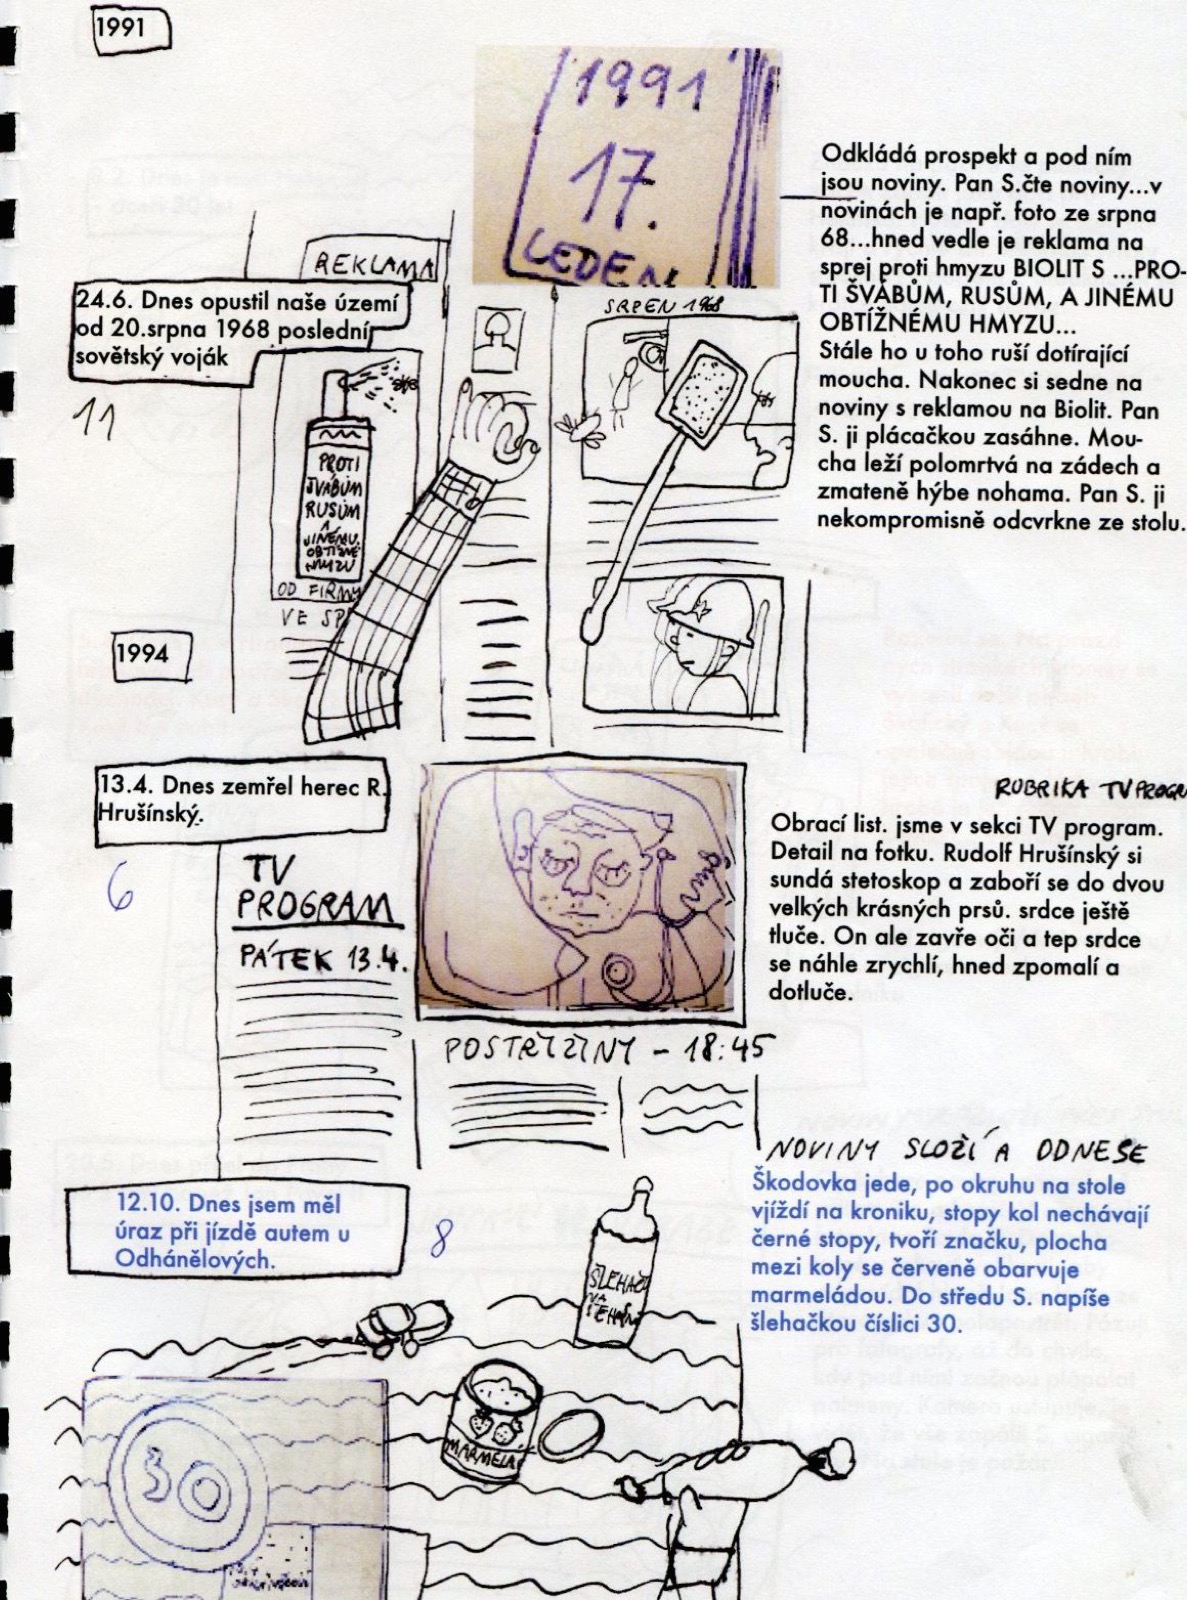 1991
1991
17.
LEDEN
Odkládá prospekt a pod ním
jsou noviny. Pan S.čte noviny...v
novinách je např. foto ze srpna
68...hned vedle je reklama na
sprej proti hmyzu BIOLIT S ...PRO-
TI ŠVÁBŮM, RUSŮM, A JINÉMU
OBTÍŽNÉMU HMYZU...
Stále ho u toho ruší dotírající
moucha. Nakonec si sedne na
noviny s reklamou na Biolit. Pan
S. ji plácačkou zasáhne. Mou-
cha leží polomrtvá na zádech a
zmateně hýbe nohama. Pan S. ji
nekompromisně odcvrkne ze stolu.
REKLAMA
24.6. Dnes opustil naše území
od 20.srpna 1968 poslední
sovětský voják
11
SRPEN 1968
PROTI
ŠVÁBŮM
RUSŮM
A
JINÉMU
OBTÍŽNÉ
HMYZU
OD FIRMY
VE SP
1994
13.4. Dnes zemřel herec R.
Hrušínský.
6
TV
PROGRAM
PÁTEK 13.4.
RUBRIKA TV PROGR
Obrací list. jsme v sekci TV program.
Detail na fotku. Rudolf Hrušínský si
sundá stetoskop a zaboří se do dvou
velkých krásných prsů. srdce ještě
tluče. On ale zavře oči a tep srdce
se náhle zrychlí, hned zpomalí a
dotluče.
POSTŘIŽINY - 18:45
NOVINY SLOŽÍ A ODNESE
12.10. Dnes jsem měl
úraz při jízdě autem u
Odhánělových.
8
Škodovka jede, po okruhu na stole
vjíždí na kroniku, stopy kol nechávají
černé stopy, tvoří značku, plocha
mezi koly se červeně obarvuje
marmeládou. Do středu S. napíše
šlehačkou číslici 30.
ŠLEHAČ
MARMELÁ
30